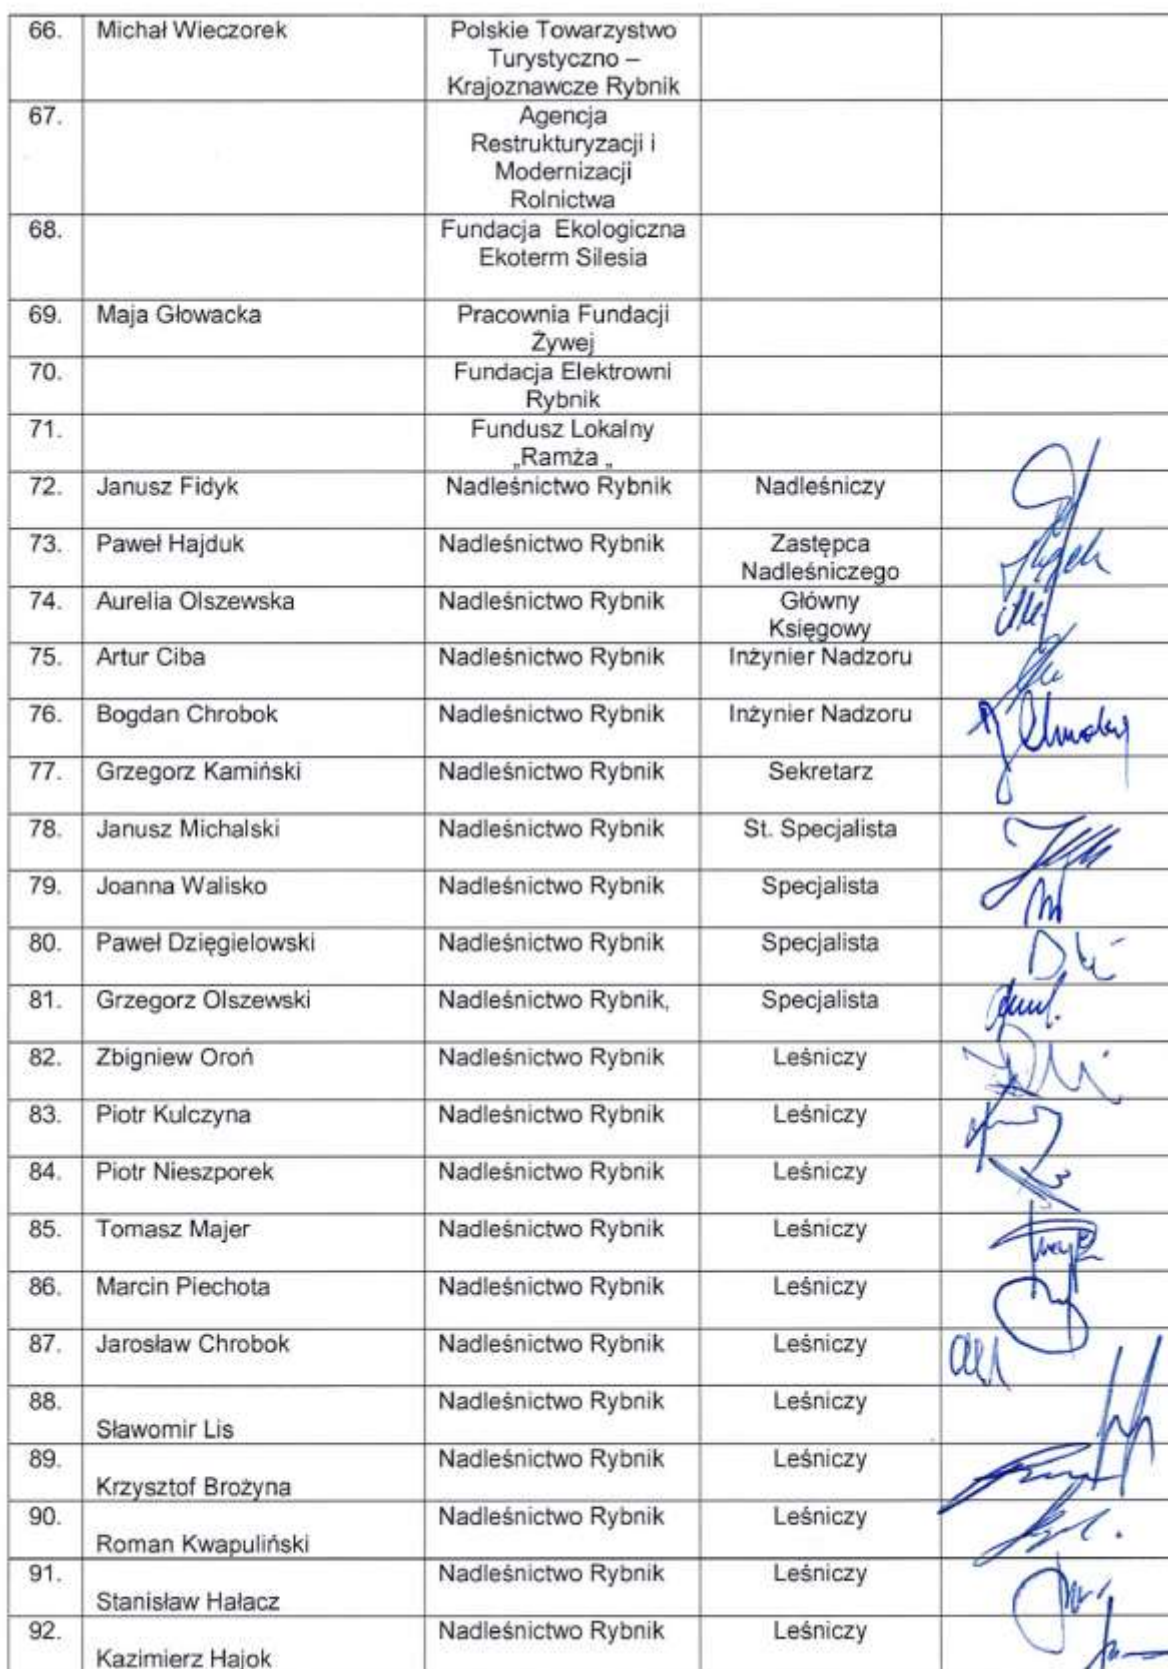 66. Michał Wieczorek Polskie Towarzystwo
Turystyczno –
Krajoznawcze Rybnik
67. Agencja
Restrukturyzacji i
Modernizacji
Rolnictwa
68. Fundacja Ekologiczna
Ekoterm Silesia
69. Maja Głowacka Pracownia Fundacji
Żywej
70. Fundacja Elektrowni
Rybnik
71. Fundusz Lokalny
„Ramża „
72. Janusz Fidyk Nadleśnictwo Rybnik Nadleśniczy
73. Paweł Hajduk Nadleśnictwo Rybnik Zastępca
Nadleśniczego
74. Aurelia Olszewska Nadleśnictwo Rybnik Główny
Księgowy
75. Artur Ciba Nadleśnictwo Rybnik Inżynier Nadzoru
76. Bogdan Chrobok Nadleśnictwo Rybnik Inżynier Nadzoru
77. Grzegorz Kamiński Nadleśnictwo Rybnik Sekretarz
78. Janusz Michalski Nadleśnictwo Rybnik St. Specjalista
79. Joanna Walisko Nadleśnictwo Rybnik Specjalista
80. Paweł Dzięgielowski Nadleśnictwo Rybnik Specjalista
81. Grzegorz Olszewski Nadleśnictwo Rybnik, Specjalista
82. Zbigniew Oroń Nadleśnictwo Rybnik Leśniczy
83. Piotr Kulczyna Nadleśnictwo Rybnik Leśniczy
84. Piotr Nieszporek Nadleśnictwo Rybnik Leśniczy
85. Tomasz Majer Nadleśnictwo Rybnik Leśniczy
86. Marcin Piechota Nadleśnictwo Rybnik Leśniczy
87. Jarosław Chrobok Nadleśnictwo Rybnik Leśniczy
88. Nadleśnictwo Rybnik Leśniczy
Sławomir Lis
89. Nadleśnictwo Rybnik Leśniczy
Krzysztof Brożyna
90. Nadleśnictwo Rybnik Leśniczy
Roman Kwapuliński
91. Nadleśnictwo Rybnik Leśniczy
Stanisław Hałacz
92. Nadleśnictwo Rybnik Leśniczy
Kazimierz Hajok